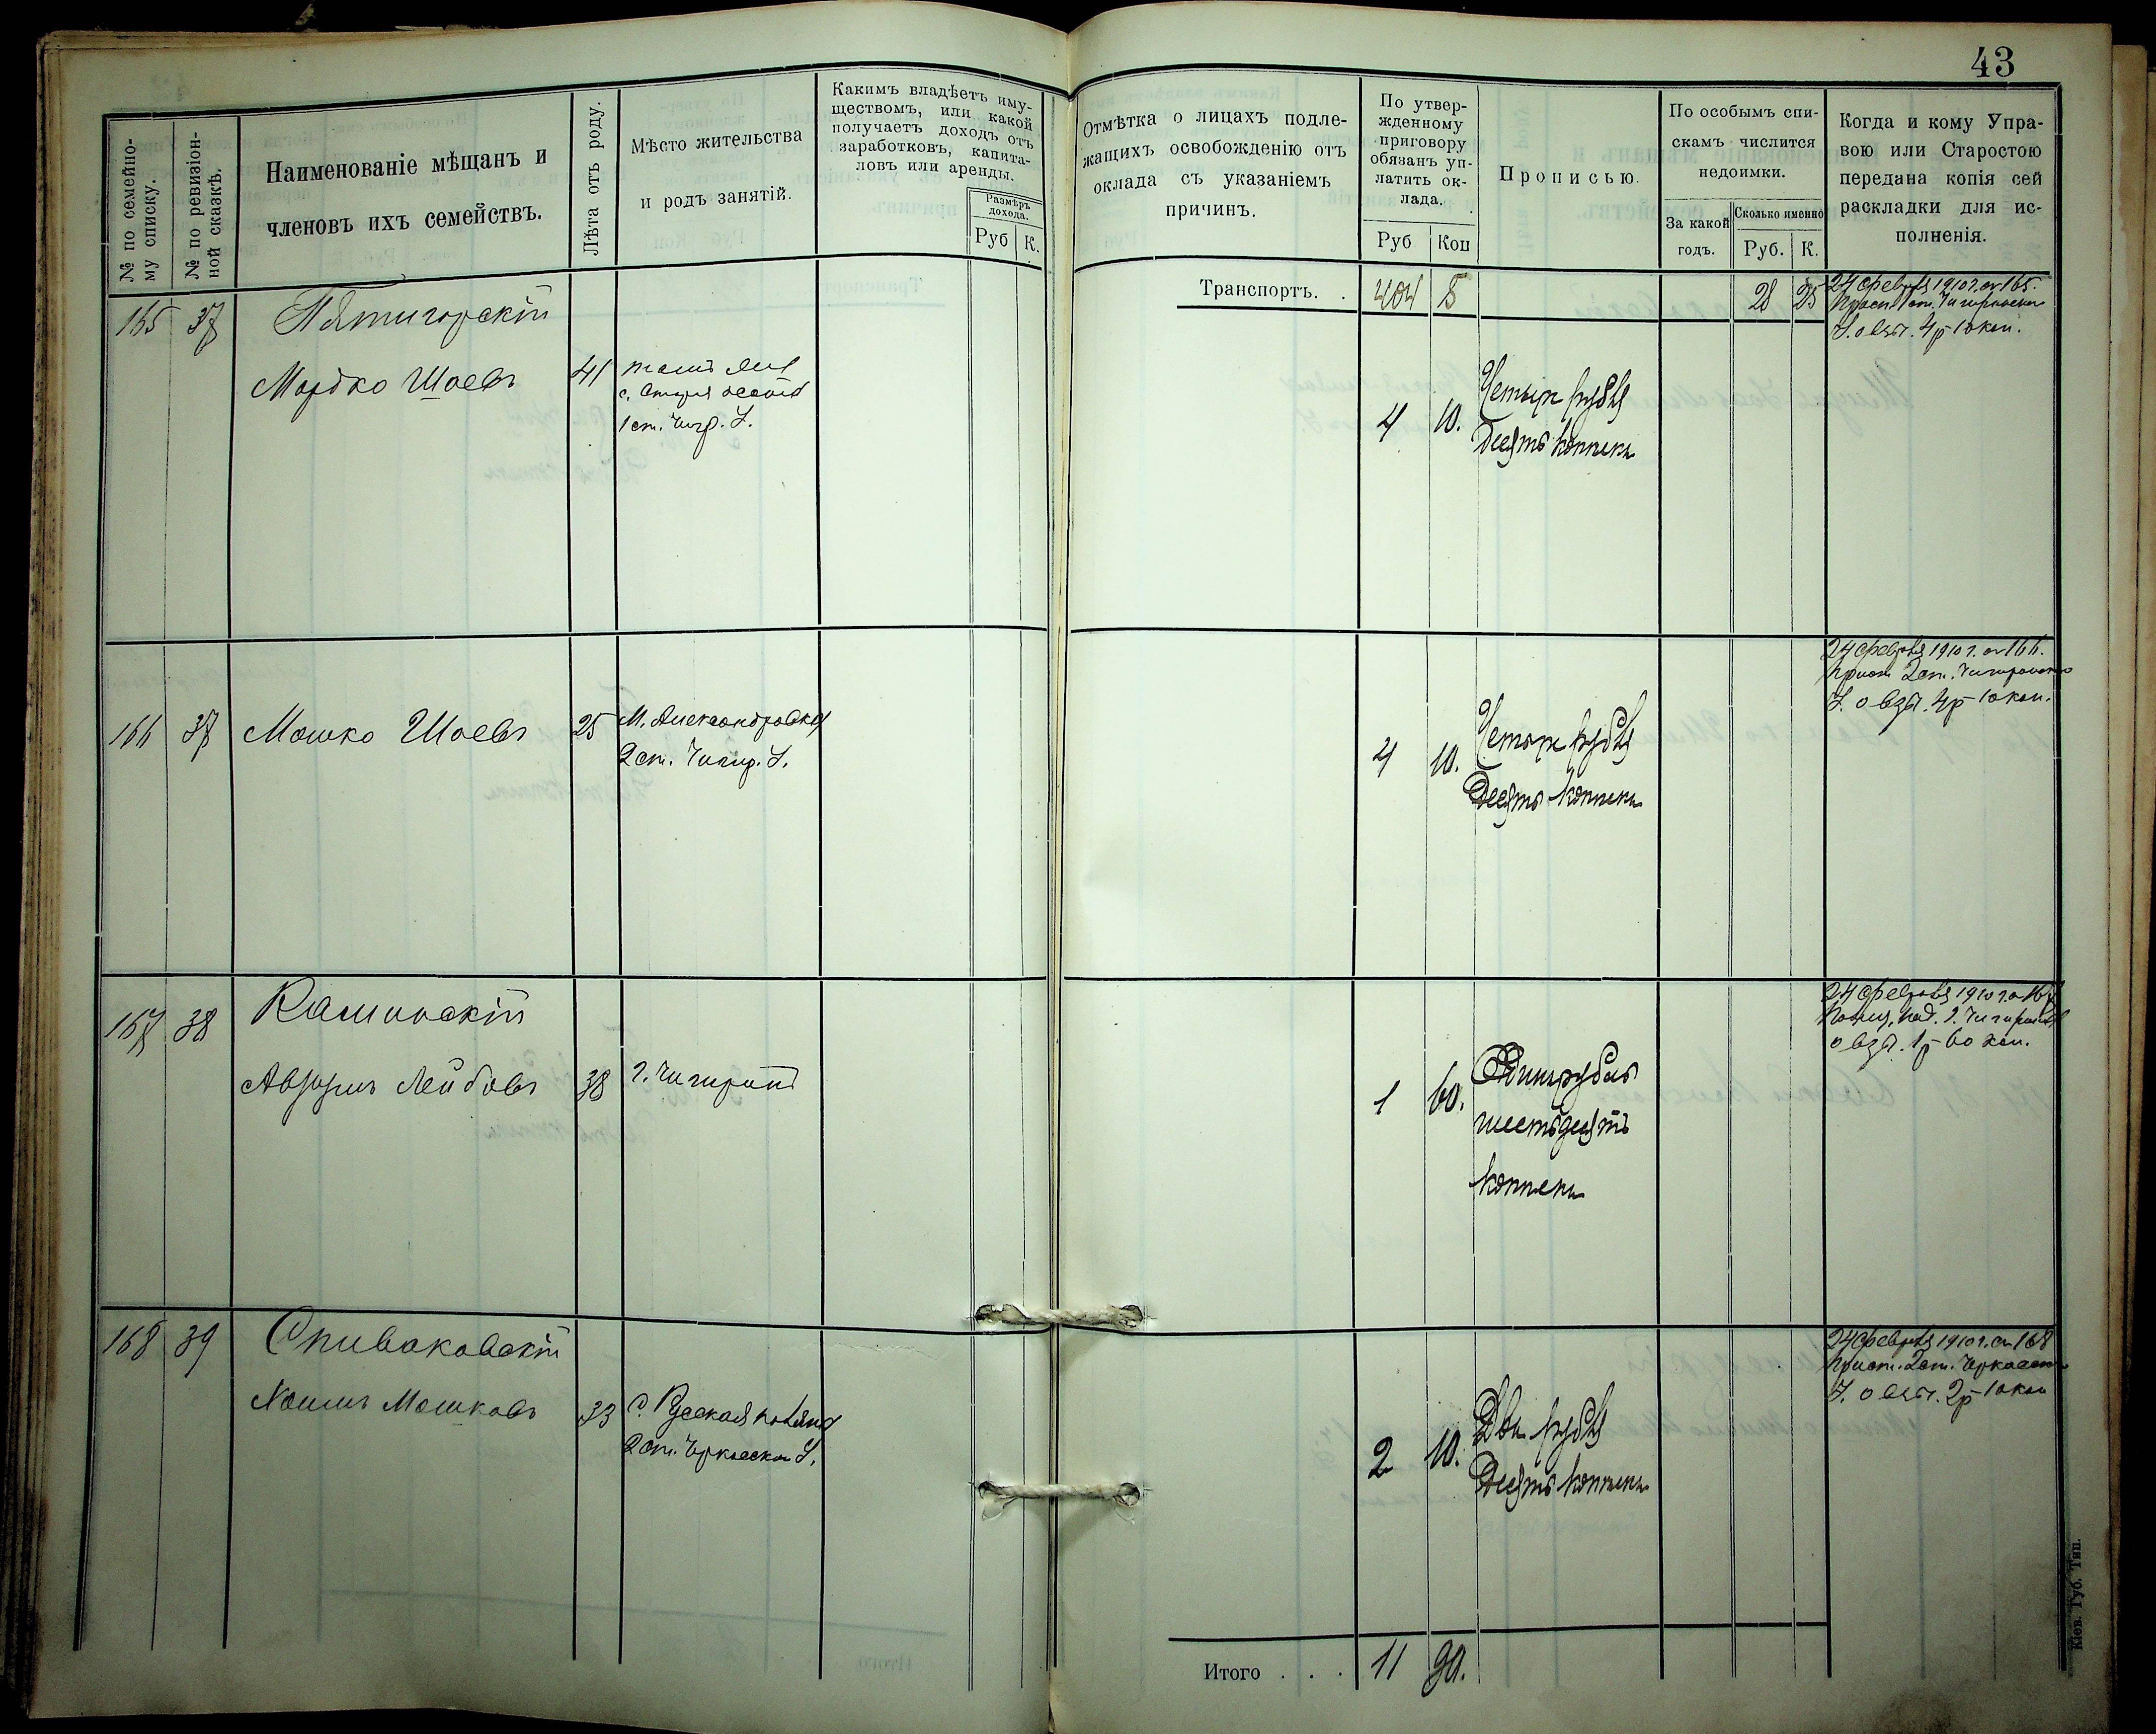 43
№ по семейно-
му списку.
№ по ревизіон-
ной сказкѣ.
Наименованіе мѣщанъ и
членовъ ихъ семействъ.
Лѣта отъ роду.
Мѣсто жительства
и родъ занятій.
Какимъ владѣетъ иму-
ществомъ, или какой
получаетъ доходъ отъ
заработковъ, капита-
ловъ или аренды.
Размѣръ
дохода.
Руб К.
Отмѣтка о лицахъ подле-
жащихъ освобожденію отъ
оклада съ указаніемъ
причинъ.
По утвер-
жденному
приговору
обязанъ уп-
латить ок-
лада.
Руб Коп
Прописью.
По особымъ спи-
скамъ числится
недоимки.
За какой
годъ.
Сколько именно
Руб. К.
Когда и кому Упра-
вою или Старостою
передана копія сей
раскладки для ис-
полненія.
Транспортъ. . 404 5 28 25
165 37 Пятигорскій
Мордко Шаевъ 41
1 ст. Чигр. У.
4 10. Четыре рубля
Десять копѣекъ
24 февраля 1910 г. № 165.
Прист. 1 ст. Чигиринск
У. о взы. 4р 10 коп.
166 37 Мошко Шаевъ 25 М. Александровка
2 ст. Чигир. У.
4 10. Четыре рубля
Десять копѣекъ
24 февраля 1910 г. № 166.
Прист 2 ст. Чигиринско
У. о взы. 4р 10 коп.
167 38 Каминскій
Авруумъ Лейбовъ 38 г. Чигиринъ
1 60. Одинъ рубль
шестьдесятъ
копѣекъ
24 февраля 1910 г. № 167
Полиц. над. г. Чигирина
о взы. 1р 60 коп.
168 39 Спиваковскій
Хаимъ Мошковъ 33 с. Русская Поляна
2 ст. Черкасск У.
2 10. Два рубля
Десять копѣекъ
24 февраля 1910 г. № 168
Прист. 2 ст. Черкасск
У. о взы. 2р 10 коп
Итого . . . 11 90.
Кіев. Губ. Тип.